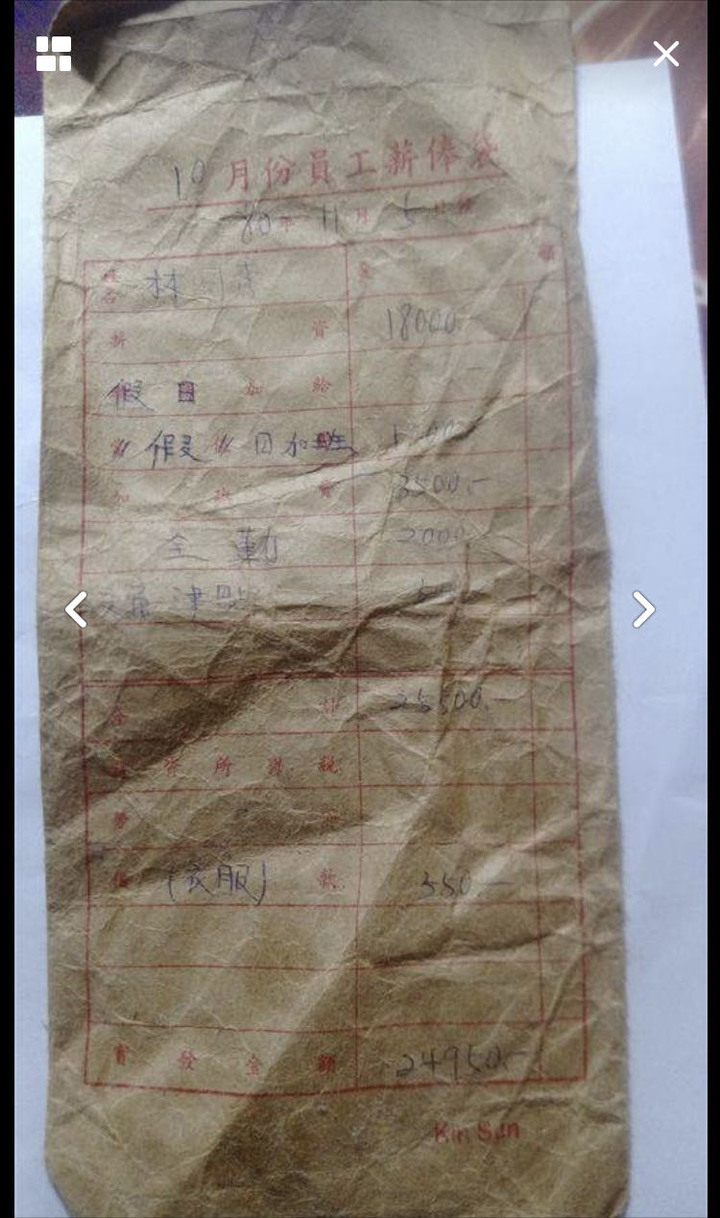 10月份員工薪俸袋
80年11月5日
姓名 林 金 額
薪 資 18000.-
假日 加 給 -
"假" 日加班
加 班 費 3500.-
全勤 2000
津貼
合 計 25500.-
薪 資 所 得 稅
勞
借 (衣服) 款 550.-
實 發 金 額 24950.-
Kin Sun